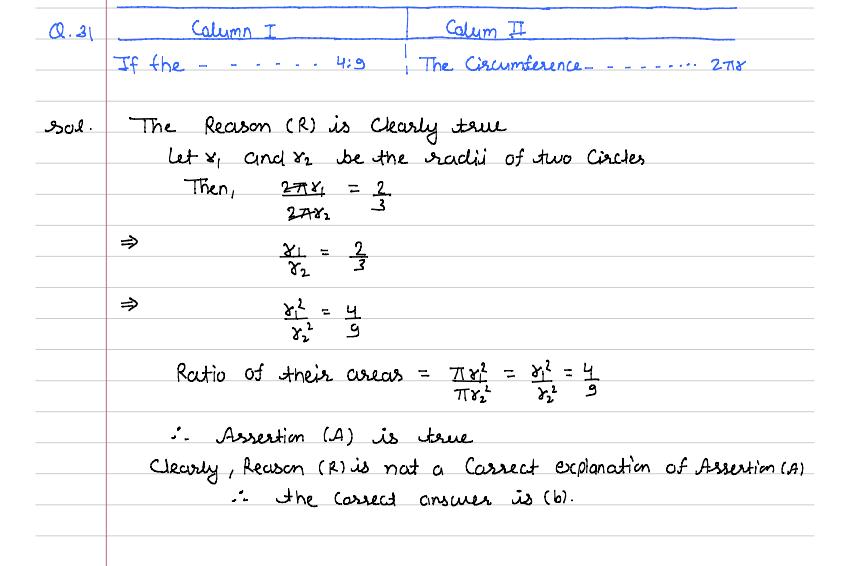 Q.31 Column I Colum II
If the - - - - . . . 4:9 The Circumference- - - - - - .... 2πr
Sol. The Reason (R) is Clearly true
Let r₁ and r₂ be the radii of two Circles
Then, 2πr₁/2πr₂ = 2/3
⇒ r₁/r₂ = 2/3
⇒ r₁²/r₂² = 4/9
Ratio of their areas = πr₁²/πr₂² = r₁²/r₂² = 4/9
∴ Assertion (A) is true
Clearly, Reason (R) is not a Correct explanation of Assertion (A)
∴ the Correct answer is (b).